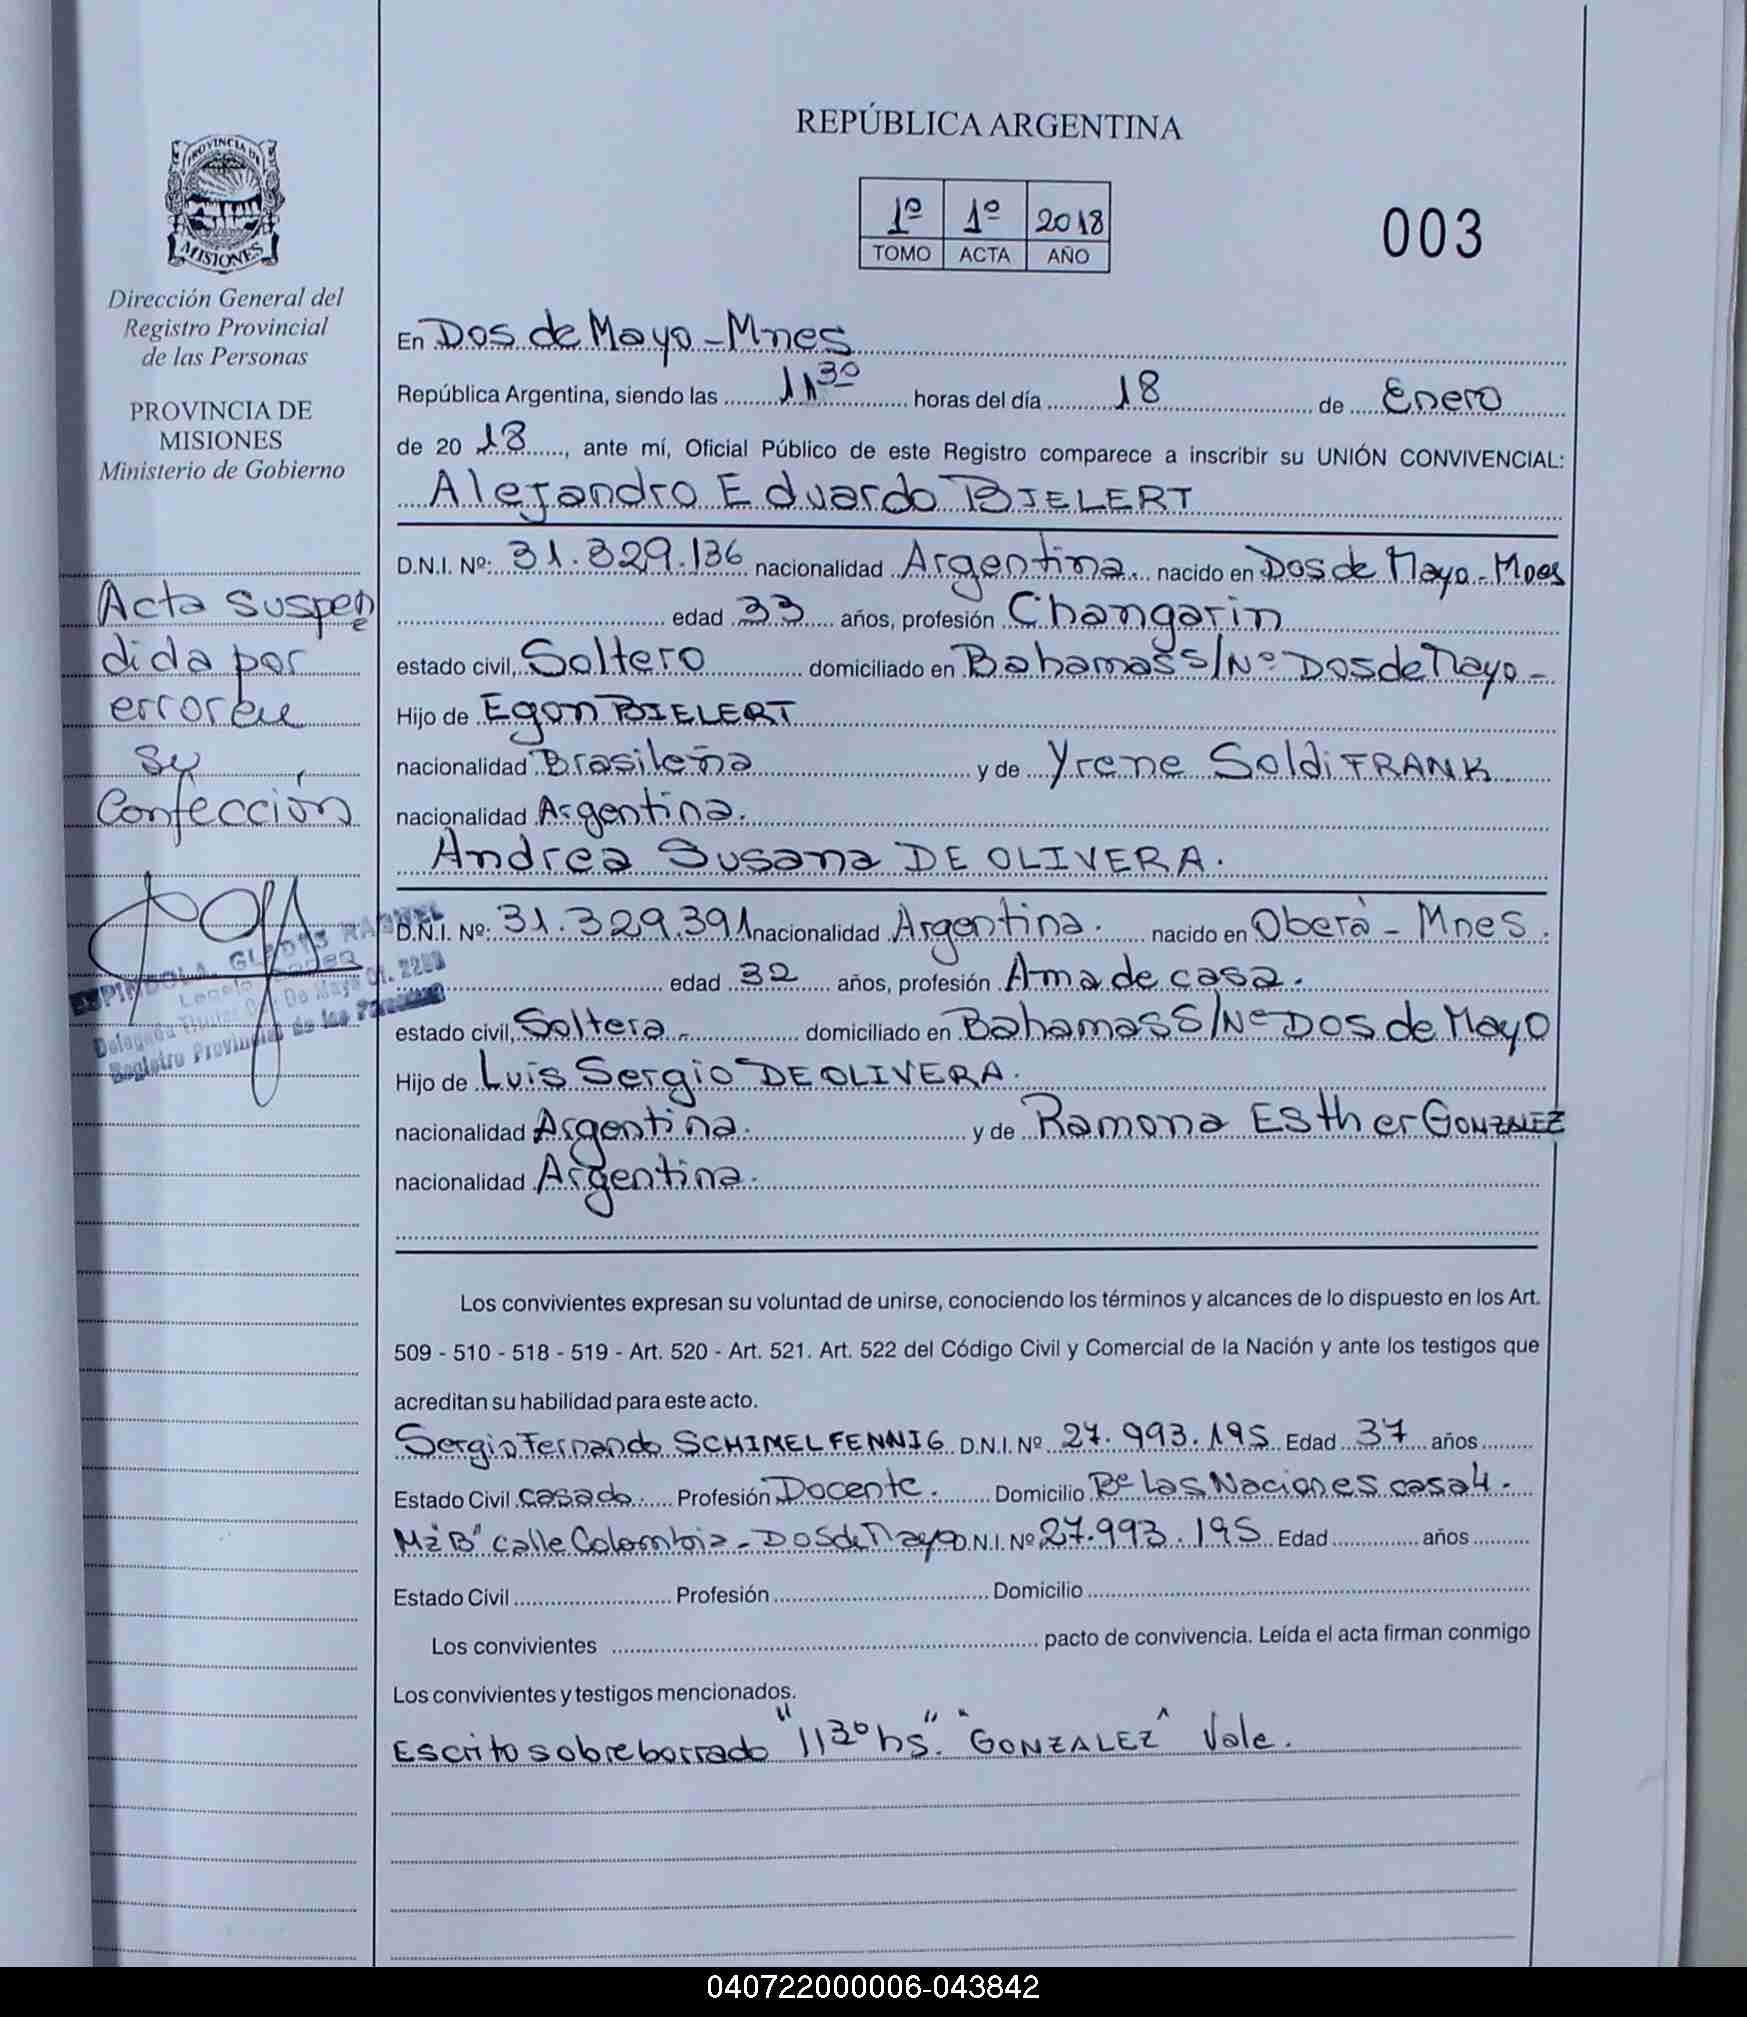 REPÚBLICA ARGENTINA
1º 1º 2018
TOMO ACTA AÑO
003
PROVINCIA DE
MISIONES
Dirección General del
Registro Provincial
de las Personas
PROVINCIA DE
MISIONES
Ministerio de Gobierno
Acta suspen
dida por
error en
su
Confección
ESPINDOLA, GLADYS RAQUEL
Registro Provincial de las Personas
En Dos de Mayo - Mnes
República Argentina, siendo las 11 30 horas del día 18 de Enero
de 20 18, ante mí, Oficial Público de este Registro comparece a inscribir su UNIÓN CONVIVENCIAL:
Alejandro Eduardo BIELERT
D.N.I. Nº: 31.329.136 nacionalidad Argentina. nacido en Dos de Mayo - Mnes
edad 33 años, profesión Changarin
estado civil, Soltero domiciliado en Bahamas S/Nº Dos de Mayo -
Hijo de Egon BIELERT
nacionalidad Brasileña y de Yrene Soldi FRANK
nacionalidad Argentina.
Andrea Susana DE OLIVERA.
D.N.I. Nº: 31.329.391 nacionalidad Argentina. nacido en Oberà - Mnes.
edad 32 años, profesión Ama de casa.
estado civil, Soltera domiciliado en Bahamas S/Nº Dos de Mayo
Hijo de Luis Sergio DE OLIVERA.
nacionalidad Argentina. y de Ramona Esther GONZALEZ
nacionalidad Argentina.
Los convivientes expresan su voluntad de unirse, conociendo los términos y alcances de lo dispuesto en los Art.
509 - 510 - 518 - 519 - Art. 520 - Art. 521. Art. 522 del Código Civil y Comercial de la Nación y ante los testigos que
acreditan su habilidad para este acto.
Sergio Fernando SCHIMELFENNIG D.N.I. Nº 27.993.195 Edad 37 años
Estado Civil casado Profesión Docente. Domicilio Bº Las Naciones casa 4.
Mz "B" calle Colombia - Dos de Mayo D.N.I. Nº 27.993.195 Edad años
Estado Civil Profesión Domicilio
Los convivientes pacto de convivencia. Leída el acta firman conmigo
Los convivientes y testigos mencionados.
Escrito sobre borrado "11 30 hs". "GONZALEZ" Vale.
040722000006-043842